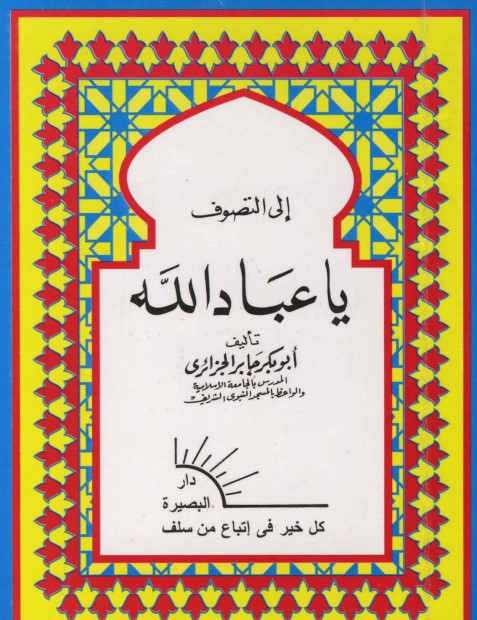 إلى التصوف
يا عباد الله
تأليف
أبو بكر جابر الجزائري
المدرس بالجامعة الإسلامية
والواعظ بالمسجد النبوي الشريف
دار
البصيرة
كل خير فى إتباع من سلف